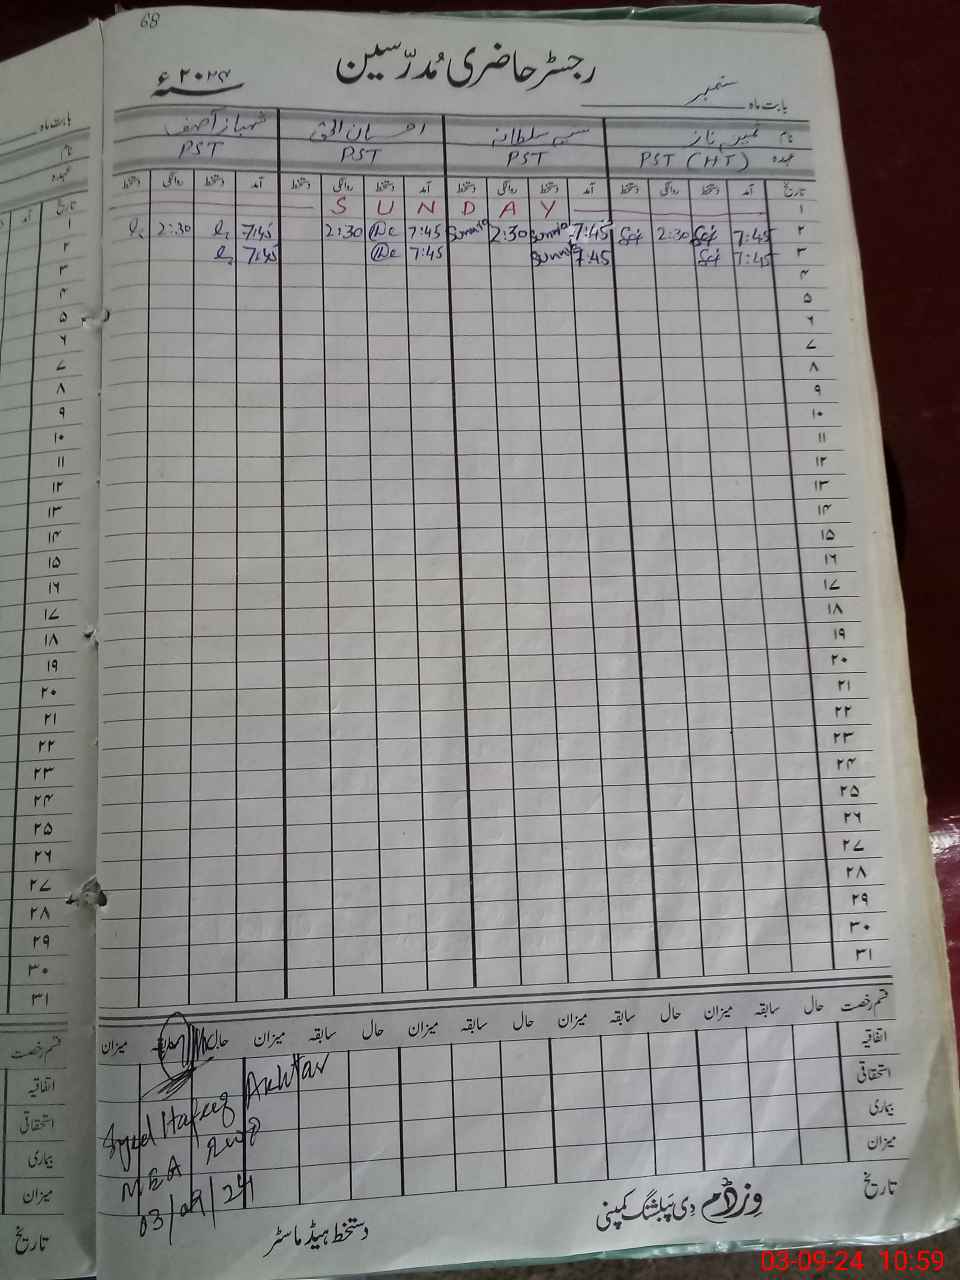 68
رجسٹر حاضری مُدرّسین
سنہ ۲۰۲۴ء
بابت ماہ ستمبر
نام ثمینہ ناز سلطانہ احسان الحق شہباز آصف
عہدہ PST (HT) PST PST PST
تاریخ آمد دستخط روانگی دستخط آمد دستخط روانگی دستخط آمد دستخط روانگی دستخط آمد دستخط روانگی دستخط
۱ SUNDAY
۲ 7:45 2:30 7:45 2:30 7:45 2:30 7:45 2:30
۳ 7:45 7:45 7:45 7:45
۴
۵
۶
۷
۸
۹
۱۰
۱۱
۱۲
۱۳
۱۴
۱۵
۱۶
۱۷
۱۸
۱۹
۲۰
۲۱
۲۲
۲۳
۲۴
۲۵
۲۶
۲۷
۲۸
۲۹
۳۰
۳۱
قسم رخصت حال سابقہ میزان حال سابقہ میزان حال سابقہ میزان حال سابقہ میزان
اتفاقیہ
استحقاقی
بیماری
میزان
Syed Hafeez Akhtar
MEA RWP
03/09/24
تاریخ
دستخط ہیڈ ماسٹر
وزڈم دی پبلشنگ کمپنی
بابت ماہ
نام
عہدہ
تاریخ آمد
۱
۲
۳
۴
۵
۶
۷
۸
۹
۱۰
۱۱
۱۲
۱۳
۱۴
۱۵
۱۶
۱۷
۱۸
۱۹
۲۰
۲۱
۲۲
۲۳
۲۴
۲۵
۲۶
۲۷
۲۸
۲۹
۳۰
۳۱
قسم رخصت
اتفاقیہ
استحقاقی
بیماری
میزان
تاریخ
03-09-24 10:59